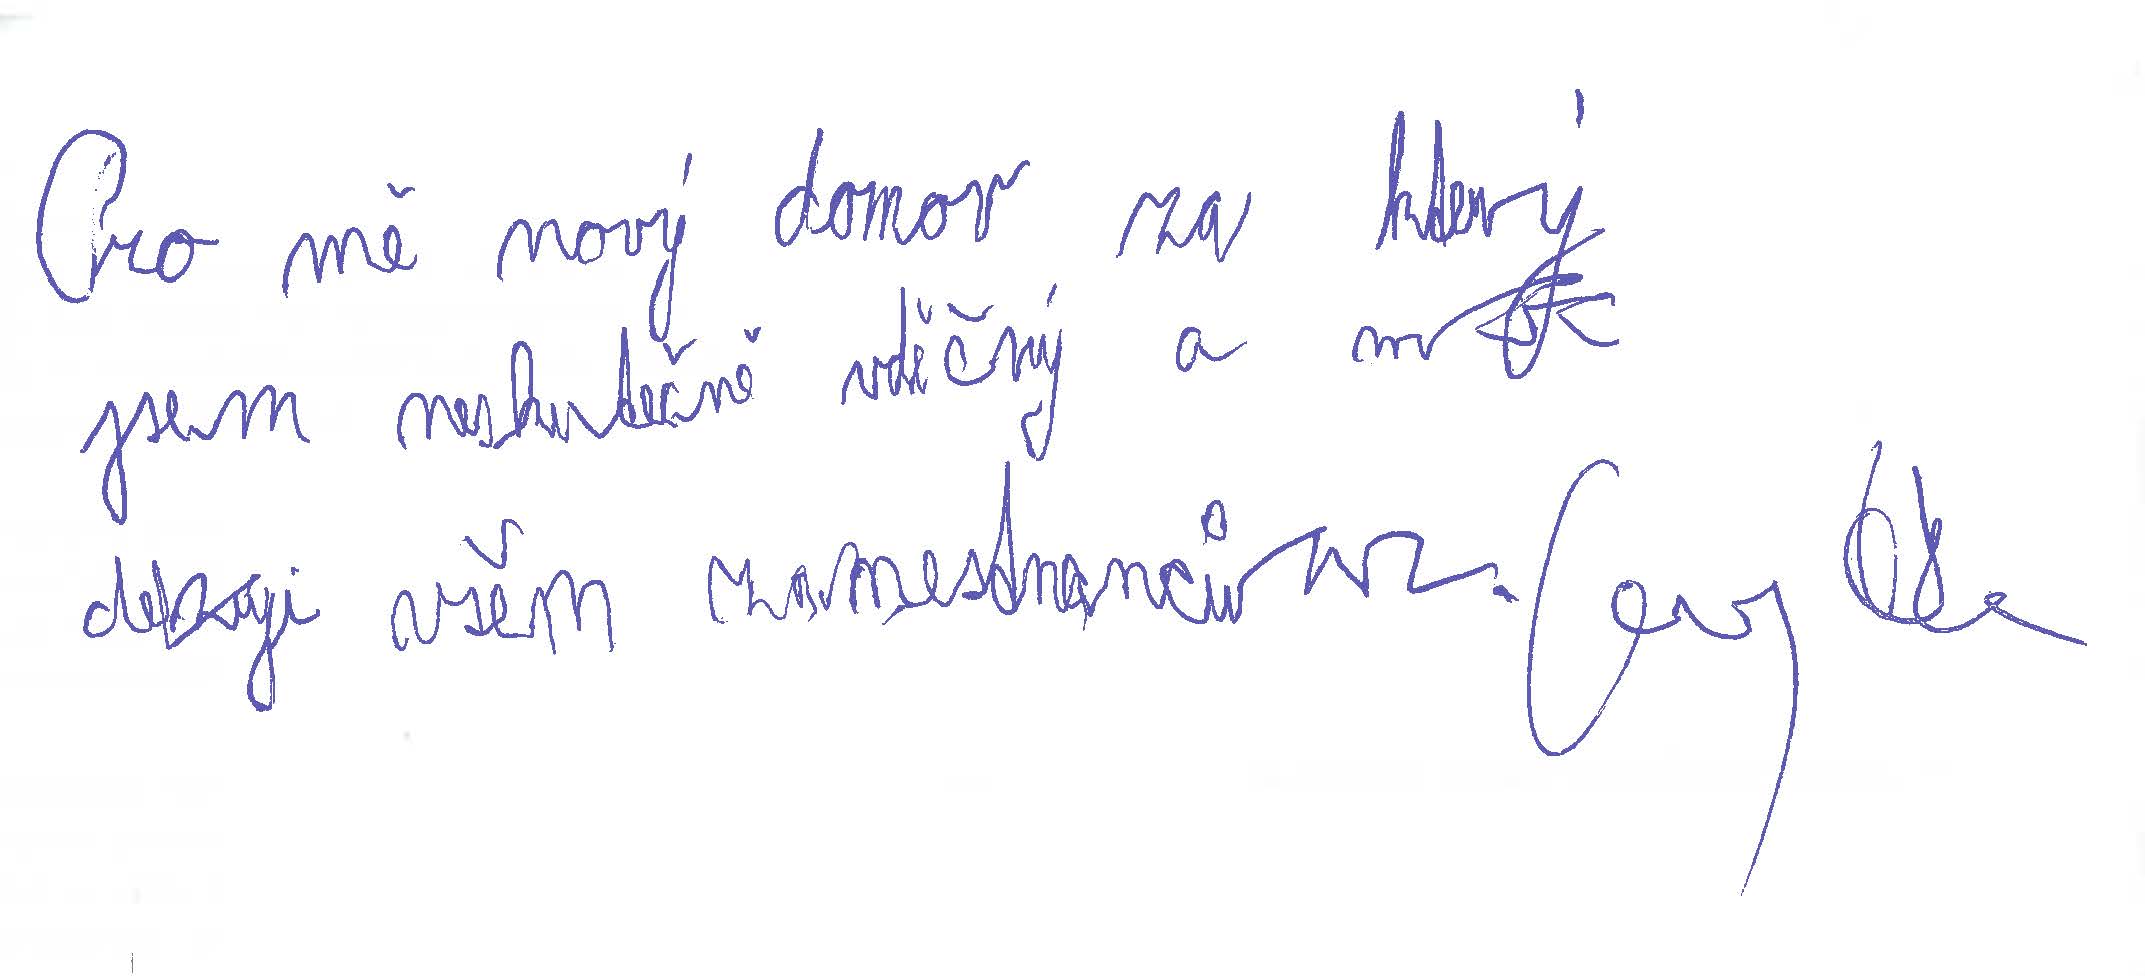 Pro mě nový domov za který
jsem neskutečně vděčný a
dekuji všem zamestnancům.